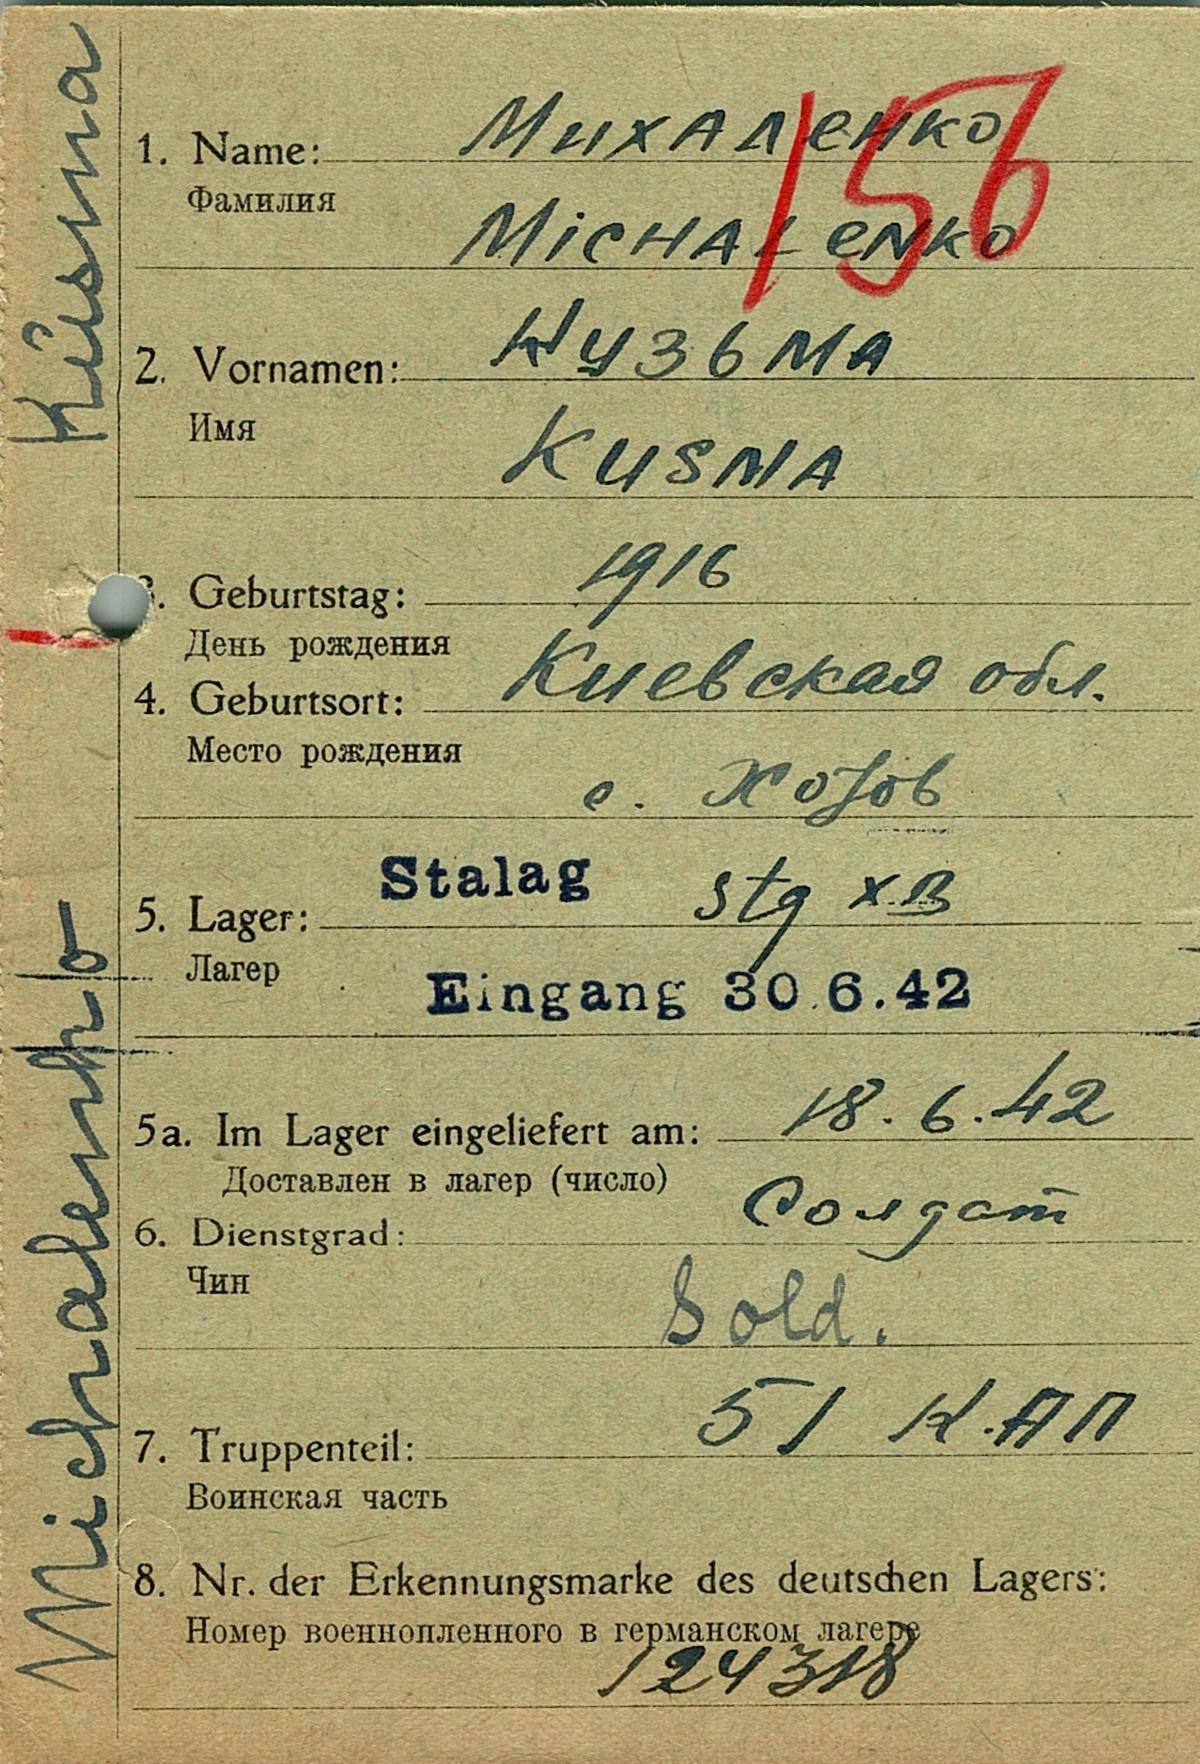 Michalenko Kusma
156
1. Name: Михаленко
Фамилия
Michalenko
2. Vornamen: Кузьма
Имя
Kusma
3. Geburtstag: 1916
День рождения
4. Geburtsort: Киевская обл.
Место рождения
с.
Stalag Stg XB
5. Lager:
Лагер
Eingang 30.6.42
5a. Im Lager eingeliefert am: 18.6.42
Доставлен в лагер (число)
6. Dienstgrad: Солдат
Чин
Sold.
7. Truppenteil: 51 К.АП
Воинская часть
8. Nr. der Erkennungsmarke des deutschen Lagers:
Номер военнопленного в германском лагере
124318